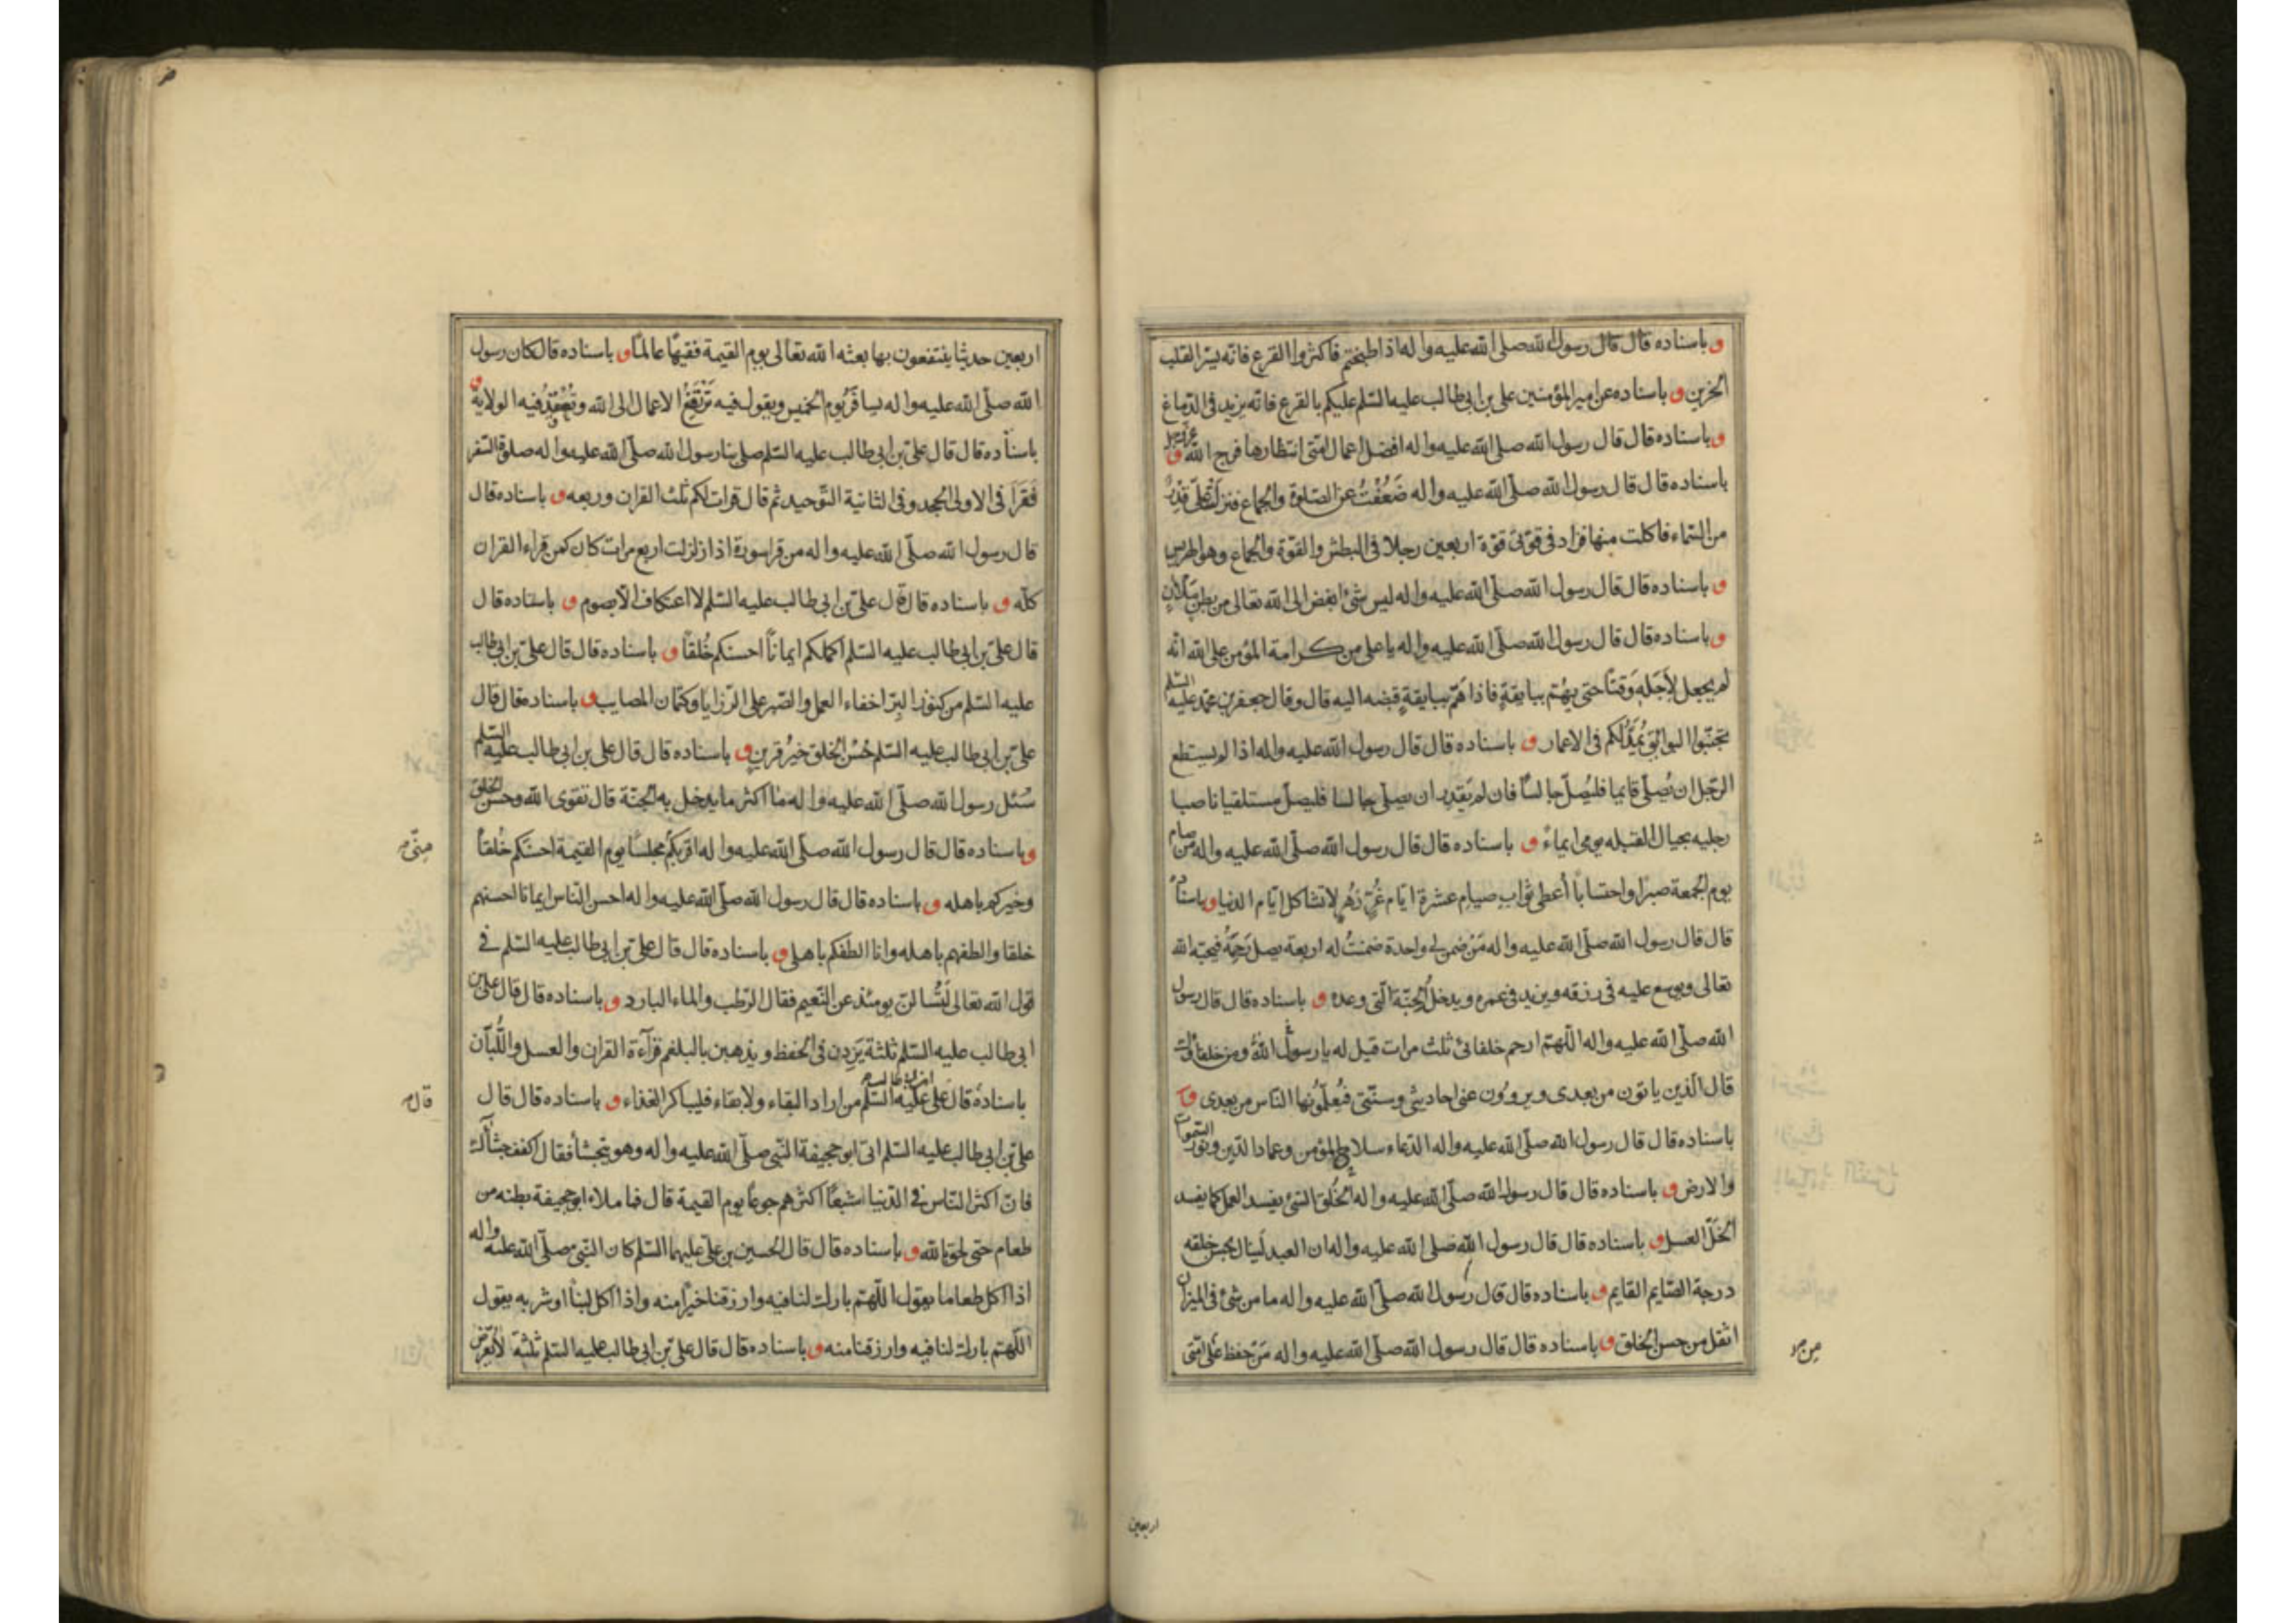 و باسناده قال قال رسول الله صلى الله عليه واله اذا طبختم فاكثروا القرع فانه يسر القلب
الحزين و باسناده عن امير المؤمنين على بن ابى طالب عليه السلم عليكم بالقرع فانه يزيد فى الدماغ
و باسناده قال قال رسول الله صلى الله عليه واله افضل اعمال امتى انتظارها فرج الله عز وجل و
باسناده قال قال رسول الله صلى الله عليه واله ضَعُفْتُ عن الصلوة والجماع فنزلت علىّ قِدْرٌ
من السماء فاكلت منها فزاد فى قوتى قوة اربعين رجلا فى البطش والقوة والجماع وهو الهريس
و باسناده قال قال رسول الله صلى الله عليه واله ليس شئ ابغض الى الله تعالى من بطن ملآن
و باسناده قال قال رسول الله صلى الله عليه واله يا على من كرامة المؤمن على الله انه
لم يجعل لأجَلِهِ وَقتاً حتى يهُمّ ببايقةٍ فاذا هَمّ ببايقةٍ قبضه اليه قال وقال جعفر بن محمد عليه السلم
تجنّبوا البوائق يُمَدُّ لكم فى الاعمار و باسناده قال قال رسول الله عليه واله اذا لم يستطع
الرجل ان يُصلّى قايما فليُصلّ جالسًا فان لم يَقدِر ان يصلّى جالسا فليصلّ مستلقيا ناصبا
رجليه بحيال القبله يومى ايماءً و باسناده قال قال رسول الله صلى الله عليه واله من صام
يوم الجمعة صبرًا واحتسابًا أعطى ثواب صيام عشرة ايام غُرّ زُهْرٍ لا تشاكل ايام الدنيا و باسناده
قال قال رسول الله صلى الله عليه واله مَنْ ضمن لى واحدة ضمنتُ له اربعة يصل رَحِمَهُ فيحبه الله
تعالى ويوسع عليه فى رزقه ويزيد فى عمره ويدخله الجنة التى وعده و باسناده قال قال رسول
الله صلى الله عليه واله اللهم ارحم خلفائى ثلث مرات قيل له يا رسول الله ومن خلفاؤك
قال الذين ياتون من بعدى ويروون عنى احاديثى وسنتى فيُعلّمُونها الناس من بعدى و
باسناده قال قال رسول الله صلى الله عليه واله الدعاء سلاح المؤمن وعماد الدين ونور السموات
والارض و باسناده قال قال رسول الله صلى الله عليه واله الخُلق السئ يفسد العمل كما يفسد
الخَلّ العسل و باسناده قال قال رسول الله صلى الله عليه واله ان العبد لَينال بحسن خلقه
درجة الصايم القايم و باسناده قال قال رسول الله صلى الله عليه واله ما من شئ فى الميزان
اثقل من حسن الخلق و باسناده قال قال رسول الله صلى الله عليه واله مَنْ حفظ على امتى
من
اربعين
اربعين حديثا ينتفعون بها بعثه الله تعالى يوم القيمة فقيهًا عالمًا و باسناده قال كان رسول
الله صلى الله عليه واله يسافر يوم الخميس ويقول فيه تَرْتَفِعُ الاعمال الى الله وتُعْقَدُ فيه الولاية و
باسناده قال قال على بن ابى طالب عليه السلم صلى بنا رسول الله صلى الله عليه واله صلوة السفر
فَقَرَأَ فى الاولى الجحد وفى الثانية التوحيد ثم قال قرات لكم ثلث القران وربعه و باسناده قال
قال رسول الله صلى الله عليه واله من قرا سورة اذا زلزلت اربع مرات كان كمن قراء القران
كله و باسناده قال قال على بن ابى طالب عليه السلم لا اعتكاف الا بصوم و باسناده قال
قال على بن ابى طالب عليه السلم اكملكم ايمانًا احسنكم خُلقًا و باسناده قال قال على بن ابى طالب
عليه السلم من كنوز البِرّ اخفاء العمل والصبر على الرزايا وكتمان المصايب و باسناده قال قال
على بن ابى طالب عليه السلم حُسْن الخلق خيرُ قرينٍ و باسناده قال قال على بن ابى طالب عليه السلم
سُئل رسول الله صلى الله عليه واله ما اكثر ما يدخل به الجنة قال تقوى الله وحسن الخلق
و باسناده قال قال رسول الله صلى الله عليه واله اقربكم مجلسًا يوم القيمة احسنكم خُلقًا
منّى
وخيركم باهله و باسناده قال قال رسول الله صلى الله عليه واله احسن الناس ايمانا احسنهم
خلقا والطفهم باهله وانا الطفكم باهلى و باسناده قال قال على بن ابى طالب عليه السلم فى
قول الله تعالى لَتُسْالنّ يومئذ عن النعيم فقال الرطب والماء البارد و باسناده قال قال على بن
ابى طالب عليه السلم ثلثة يَزِدن فى الحفظ ويذهبن بالبلغم قراءة القران والعسل واللُّبان
باسناده قال على ابن ابى طالب عليه السلم من اراد البقاء ولا بقاء فليباكر الغذاء و باسناده قال قال
قال
على بن ابى طالب عليه السلم اتى ابو جحيفة النبى صلى الله عليه واله وهو يتجشأ فقال اكفف جشأك
فان اكثر الناس فى الدنيا شبعًا اكثرهم جوعًا يوم القيمة قال فما ملاء ابو جحيفة بطنه من
طعام حتى لحق بالله و باسناده قال قال الحسين بن على عليهما السلم كان النبى صلى الله عليه واله
اذا اكل طعاما يقول اللهم بارك لنا فيه وارزقنا خيرًا منه واذا اكل لبنًا او شربه يقول
اللهم بارك لنا فيه وارزقنا منه و باسناده قال قال على بن ابى طالب عليه السلم ثلثة لا يعرض